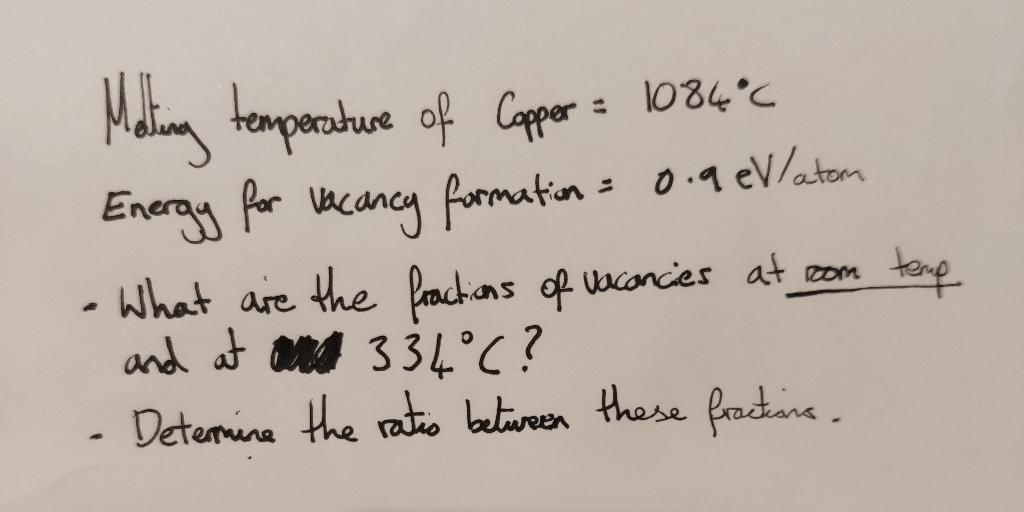 Melting temperature of Copper = 1084°C
Energy for vacancy formation = 0.9 eV/atom
- What are the fractions of vacancies at room temp
and at 334°C?
- Determine the ratio between these fractions.